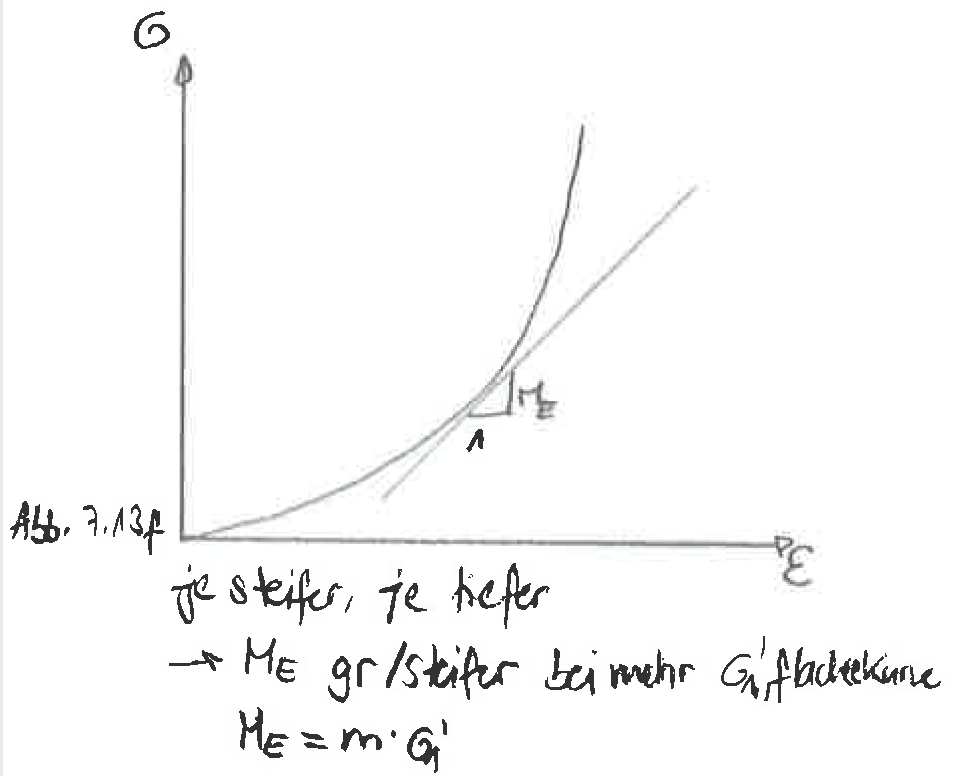 σ
M_E
1
Abb. 7.13f
ε
je steifer, je tiefer
→ M_E gr/steifer bei mehr σ₁' flachekurve
M_E = m · σ₁'